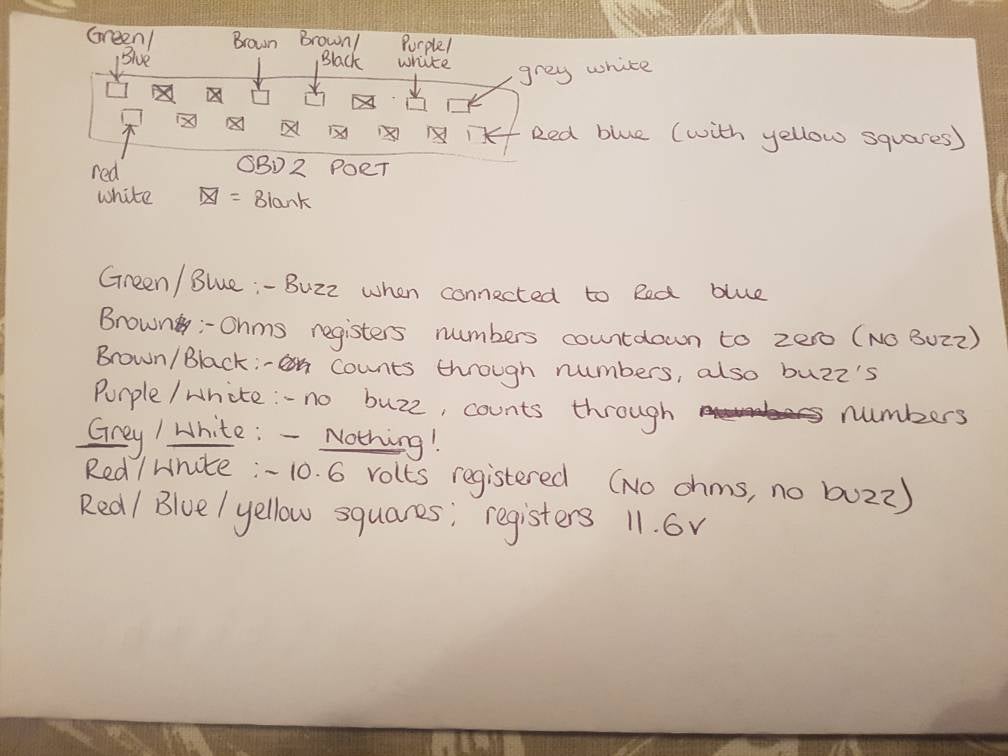 Green/ Blue
Brown
Brown/ Black
Purple/ white
grey white
Red blue (with yellow squares)
red white
OBD2 PORT
= Blank
Green/Blue :- Buzz when connected to Red blue
Brown :- Ohms registers numbers countdown to zero (No Buzz)
Brown/Black :- counts through numbers, also buzz's
Purple/white :- no buzz, counts through numbers
Grey/White : - Nothing!
Red/White :- 10.6 volts registered (No ohms, no buzz)
Red/Blue/yellow squares; registers 11.6v